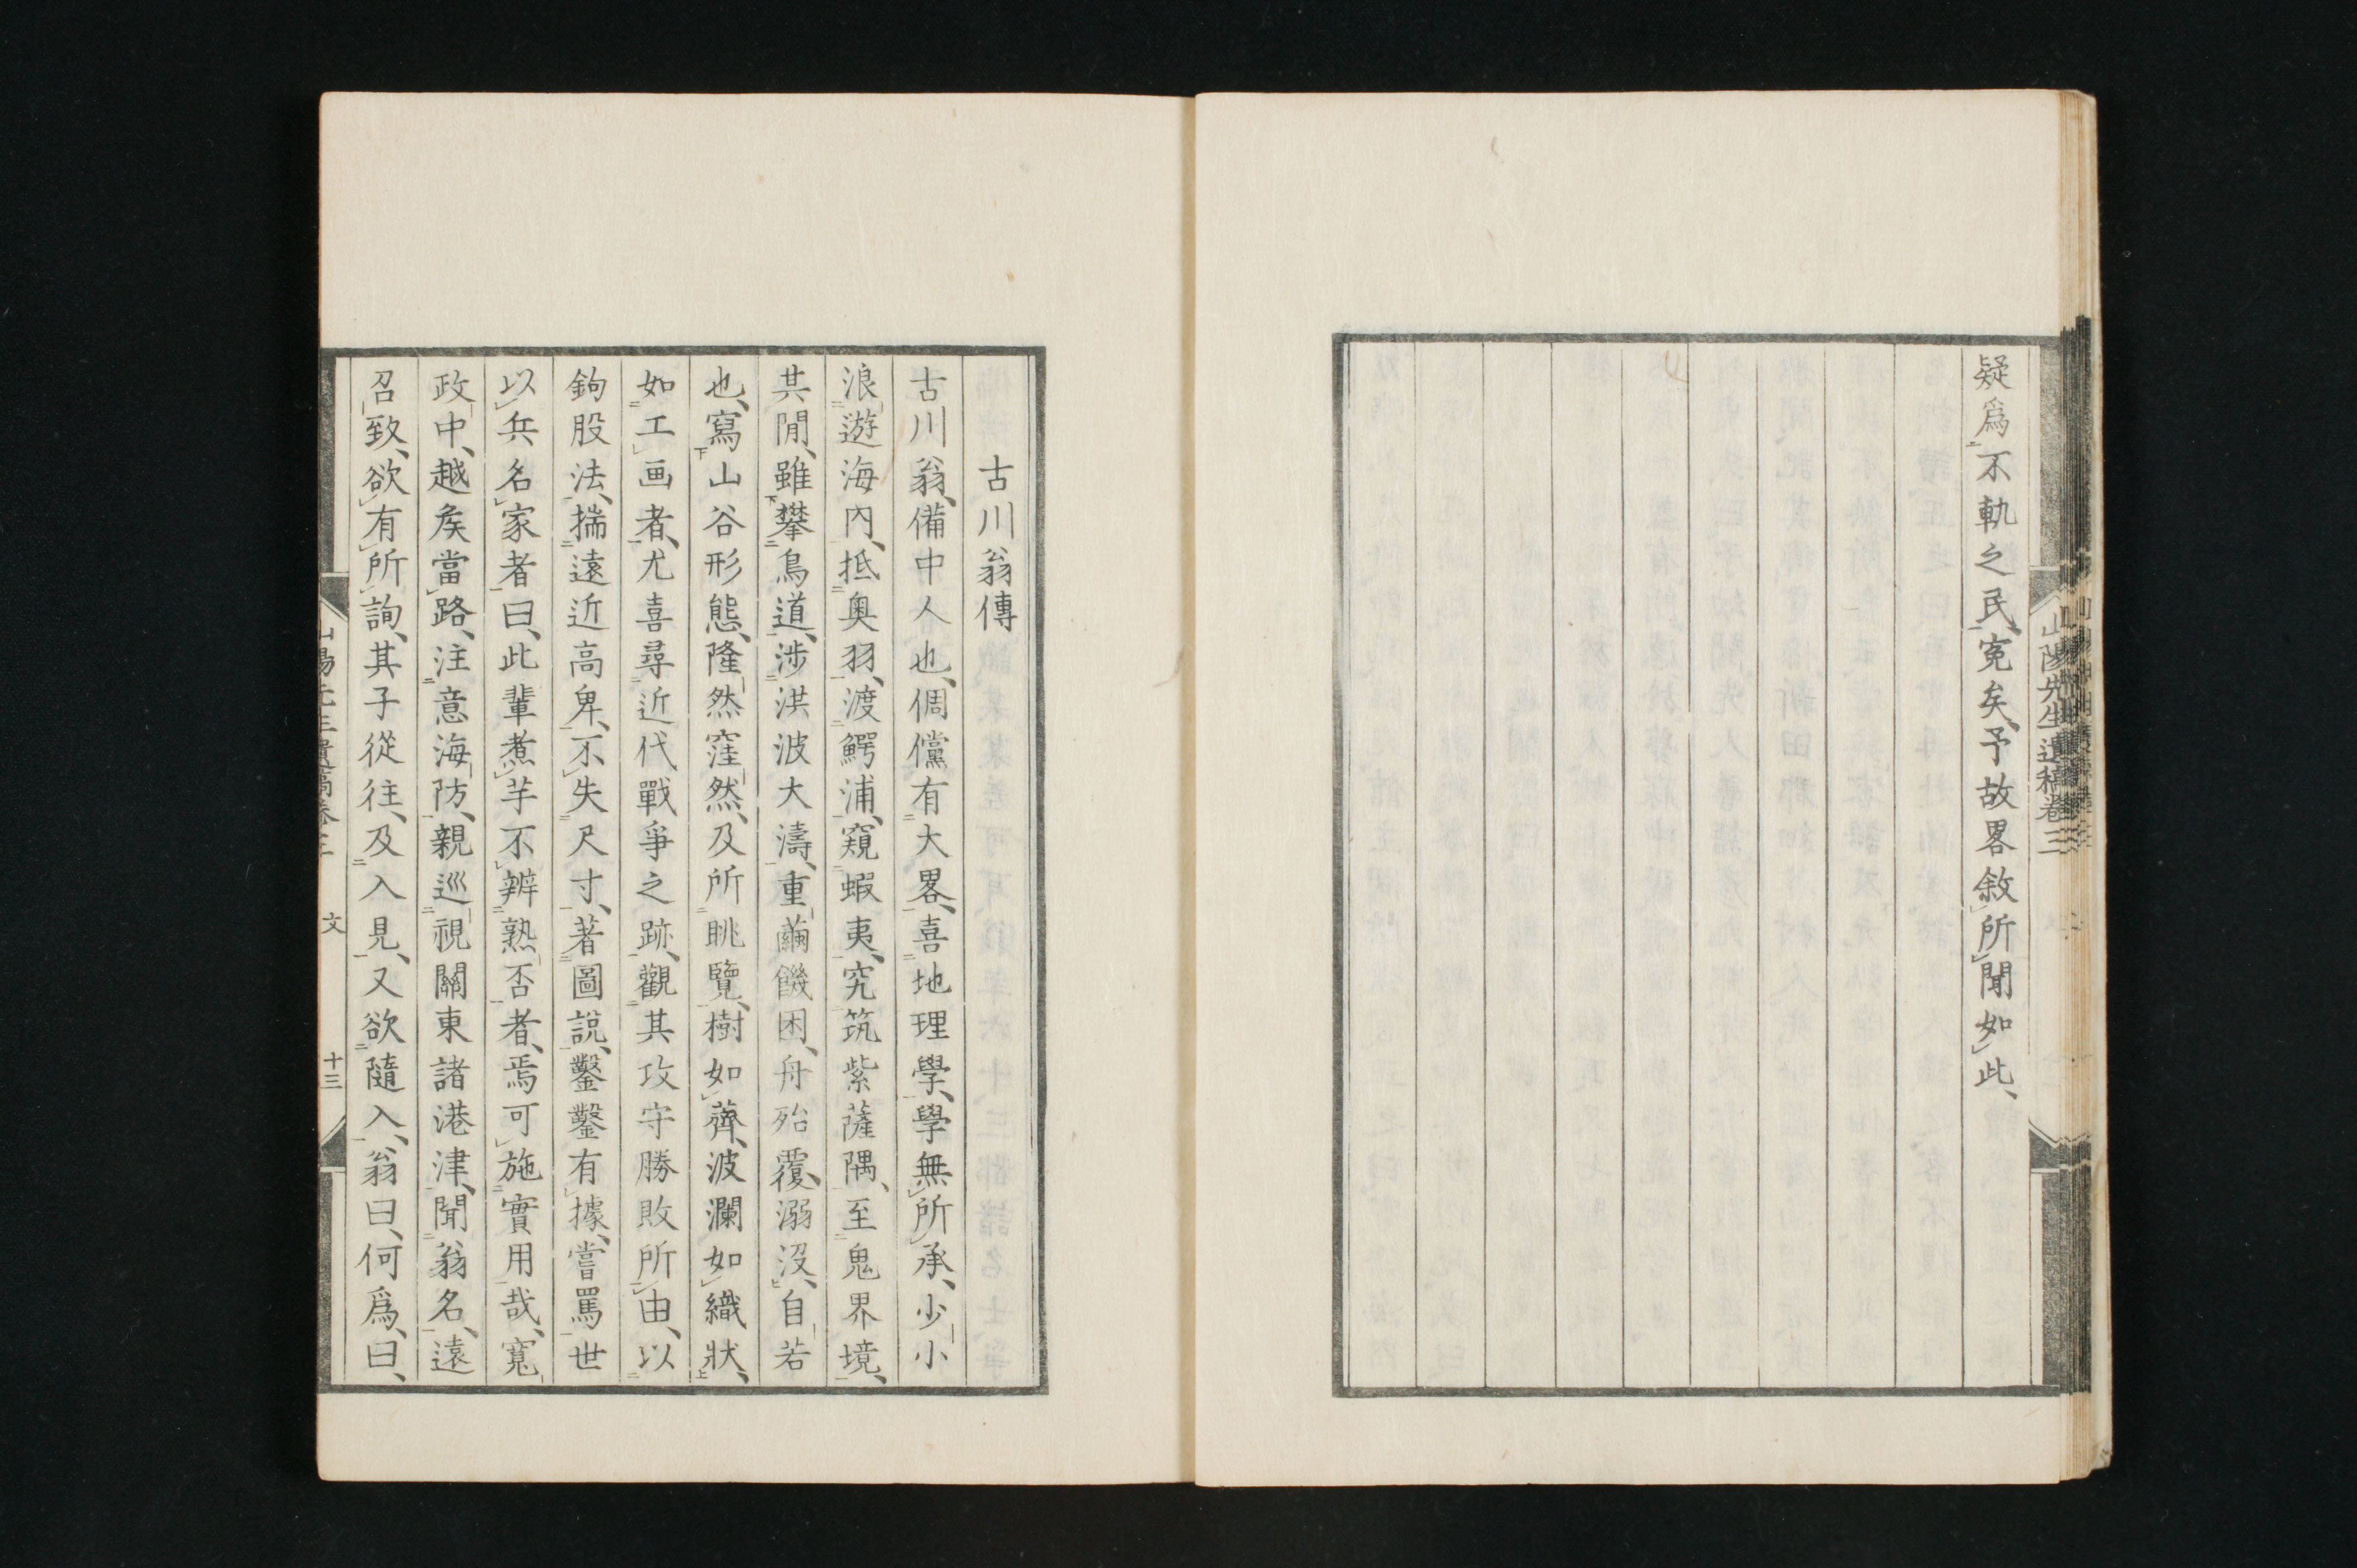 疑爲不軌之民、寃矣、予故畧敘所聞如此、
山陽先生遺稿卷三
古川翁傳
古川翁、備中人也、倜儻有大畧、喜地理學、學無所承、少小
浪遊海内、抵奥羽、渡鰐浦、窺蝦夷、究筑紫薩隅、至鬼界境、
其閒、雖攀鳥道、涉洪波大濤、重繭饑困、舟殆覆、溺沒、自若
也、寫山谷形態、隆然窪然、及所眺覽、樹如薺、波瀾如織狀、
如工画者、尤喜尋近代戰爭之跡、觀其攻守勝敗所由、以
鉤股法、揣遠近高卑、不失尺寸、著圖説、鑿鑿有據、嘗罵世
以兵名家者曰、此輩煮芋不辨熟否者、焉可施實用哉、寛
政中、越矦當路、注意海防、親巡視關東諸港津、聞翁名、遠
召致、欲有所詢、其子從往、及入見、又欲隨入、翁曰、何爲、曰、
山陽先生遺稿卷三 文 十三